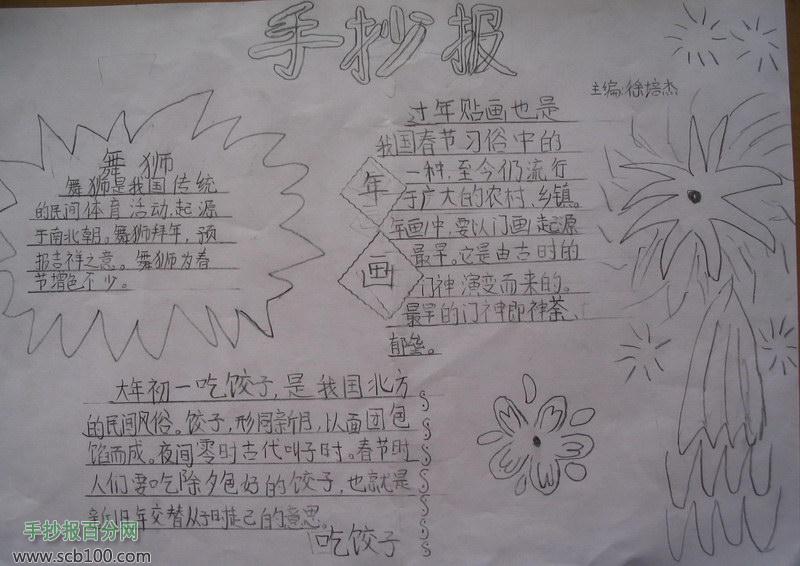 手抄报
主编:徐培杰
舞 狮
舞狮是我国传统
的民间体育活动,起源
于南北朝。舞狮拜年,预
报吉祥之意。舞狮为春
节增色不少。
年画
过年贴画也是
我国春节习俗中的
一种,至今仍流行
于广大的农村,乡镇。
年画中,要以门画起源
最早。它是由古时的
门神演变而来的。
最早的门神即神荼、
郁垒。
大年初一吃饺子,是我国北方
的民间风俗。饺子,形同新月,以面团包
馅而成。夜间零时古代叫子时。春节时
人们要吃除夕包好的饺子,也就是
新旧年交替从子时 的意思。
吃饺子
手抄报百分网
www.scb100.com